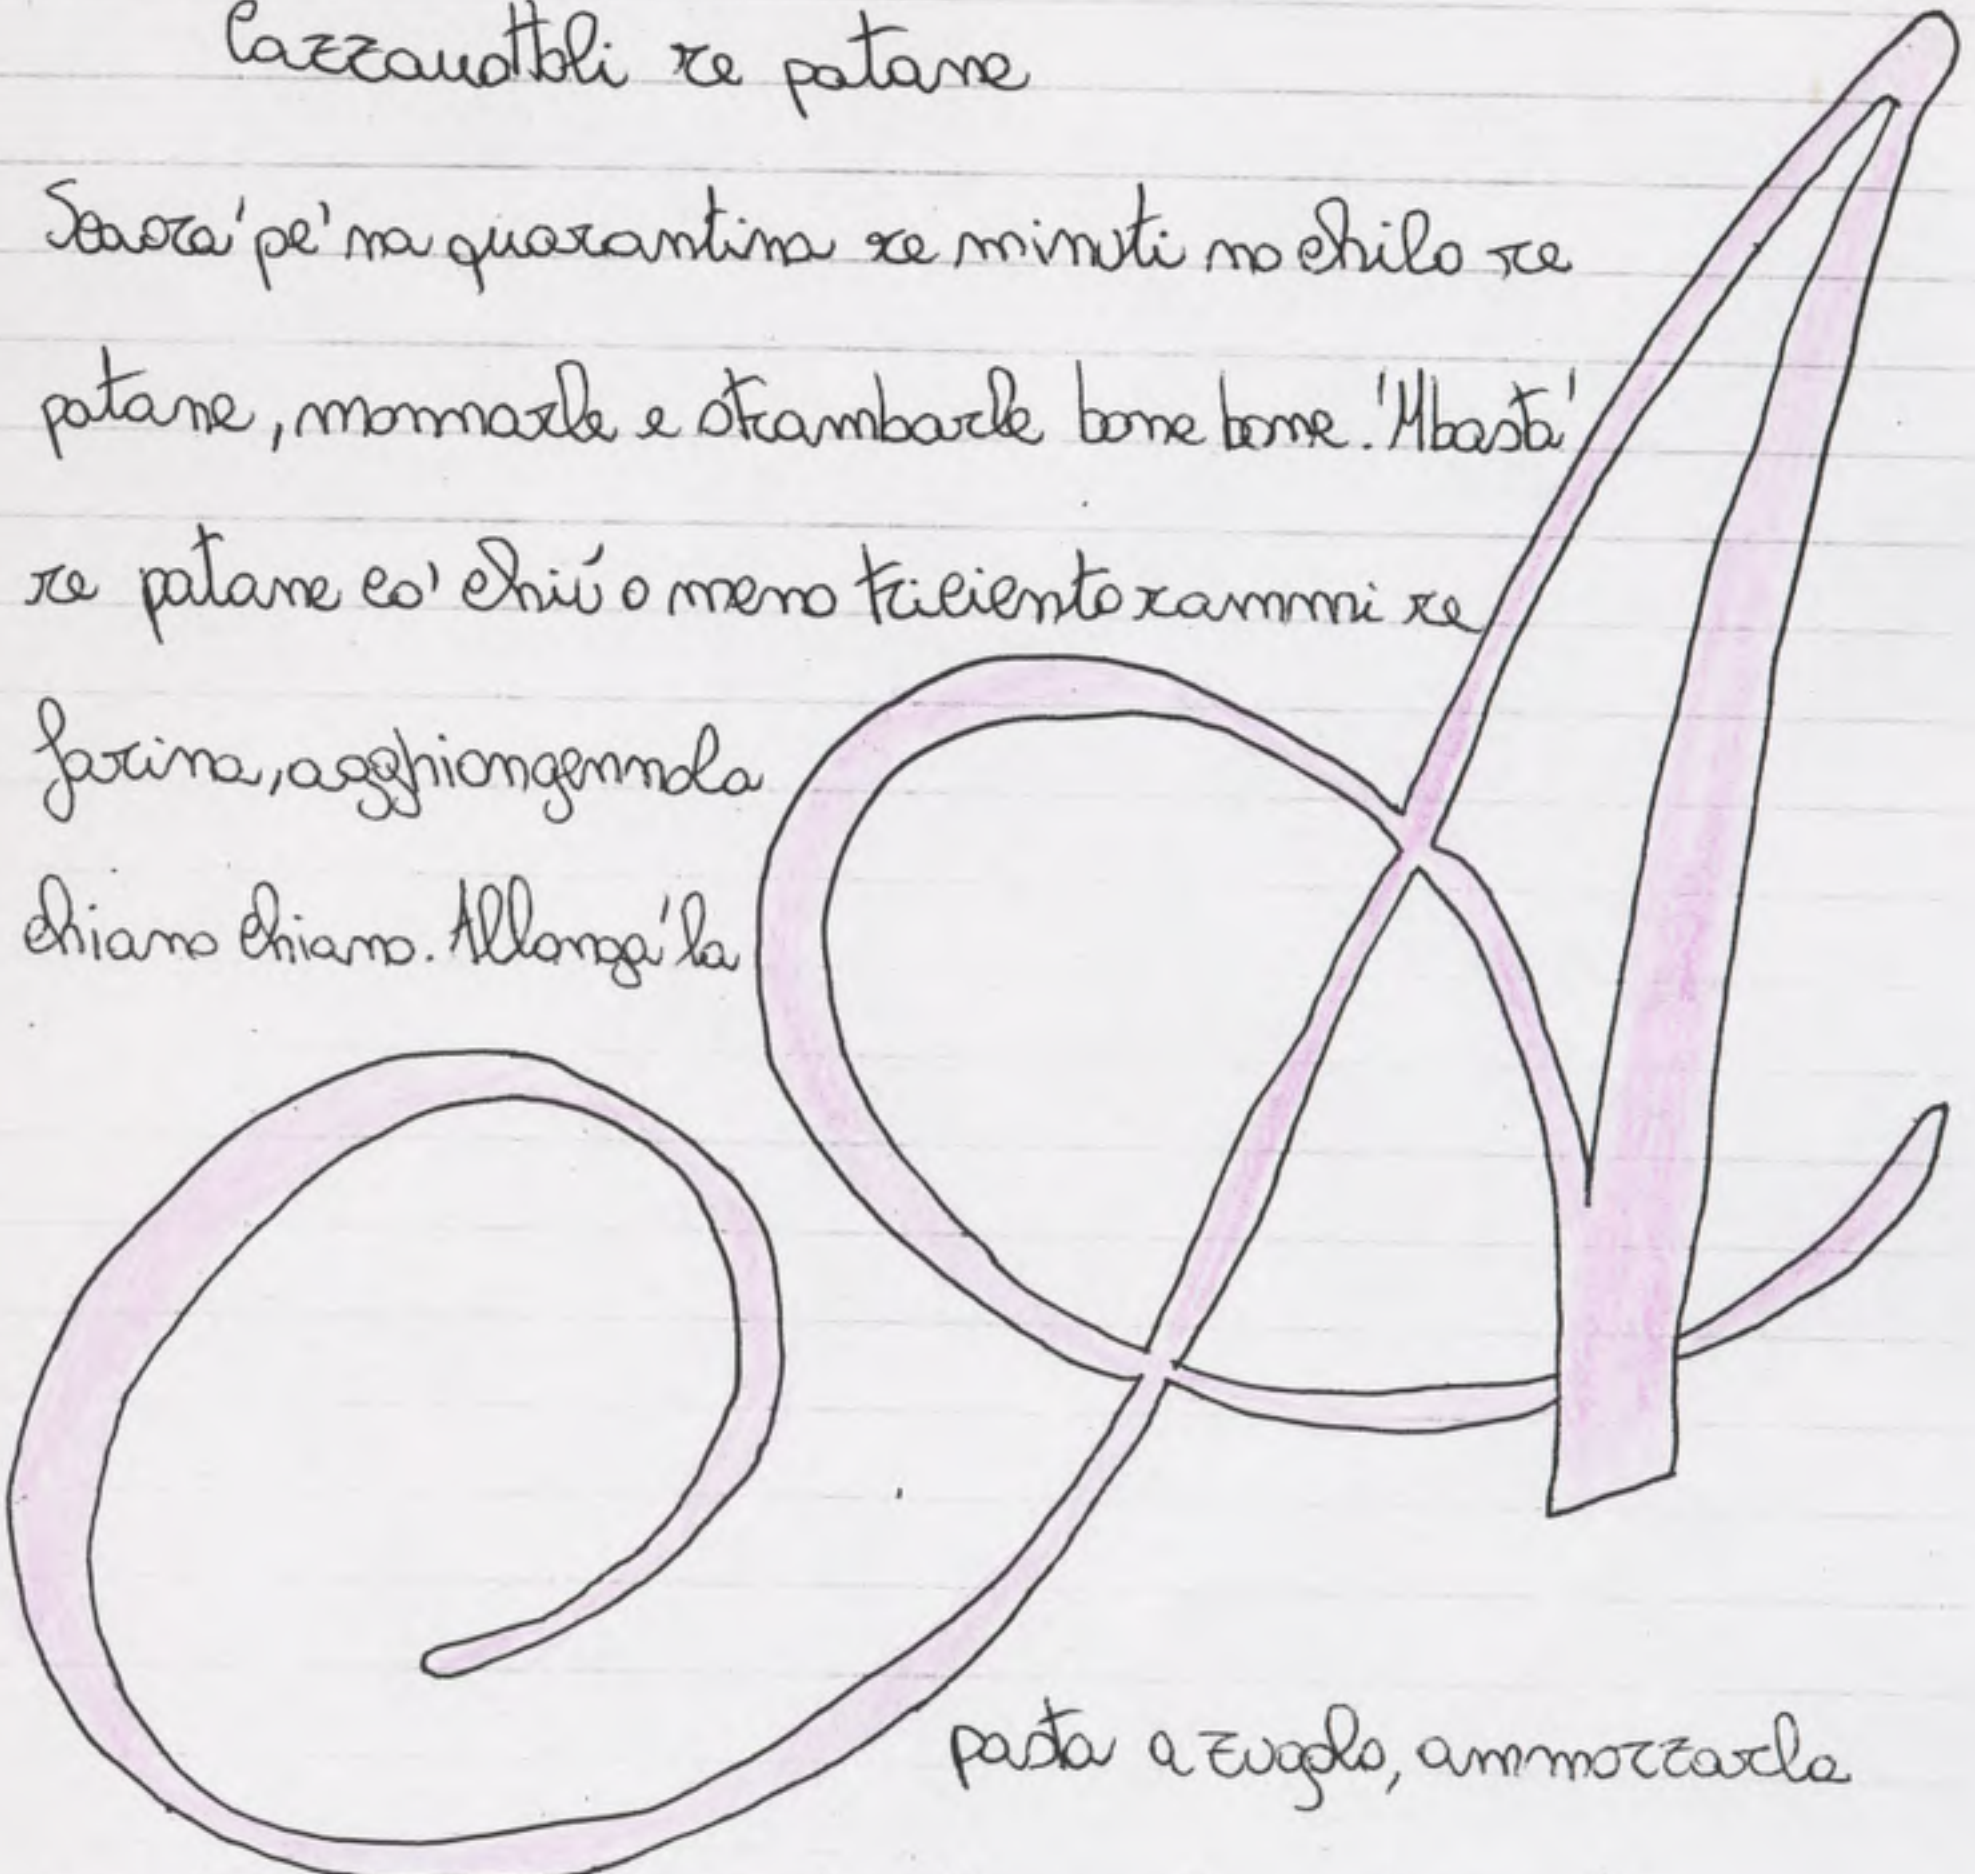 Cazzauottoli re patane
Scaora' pe' na quarantina re minuti no chilo re
patane, monnarle e strambarle bone bone. 'Mbasta'
re patane co' chiù o meno triciento rammi re
farina, agghiongennola
chiano chiano. Allonga' la
pasta a zugolo, ammozzarla